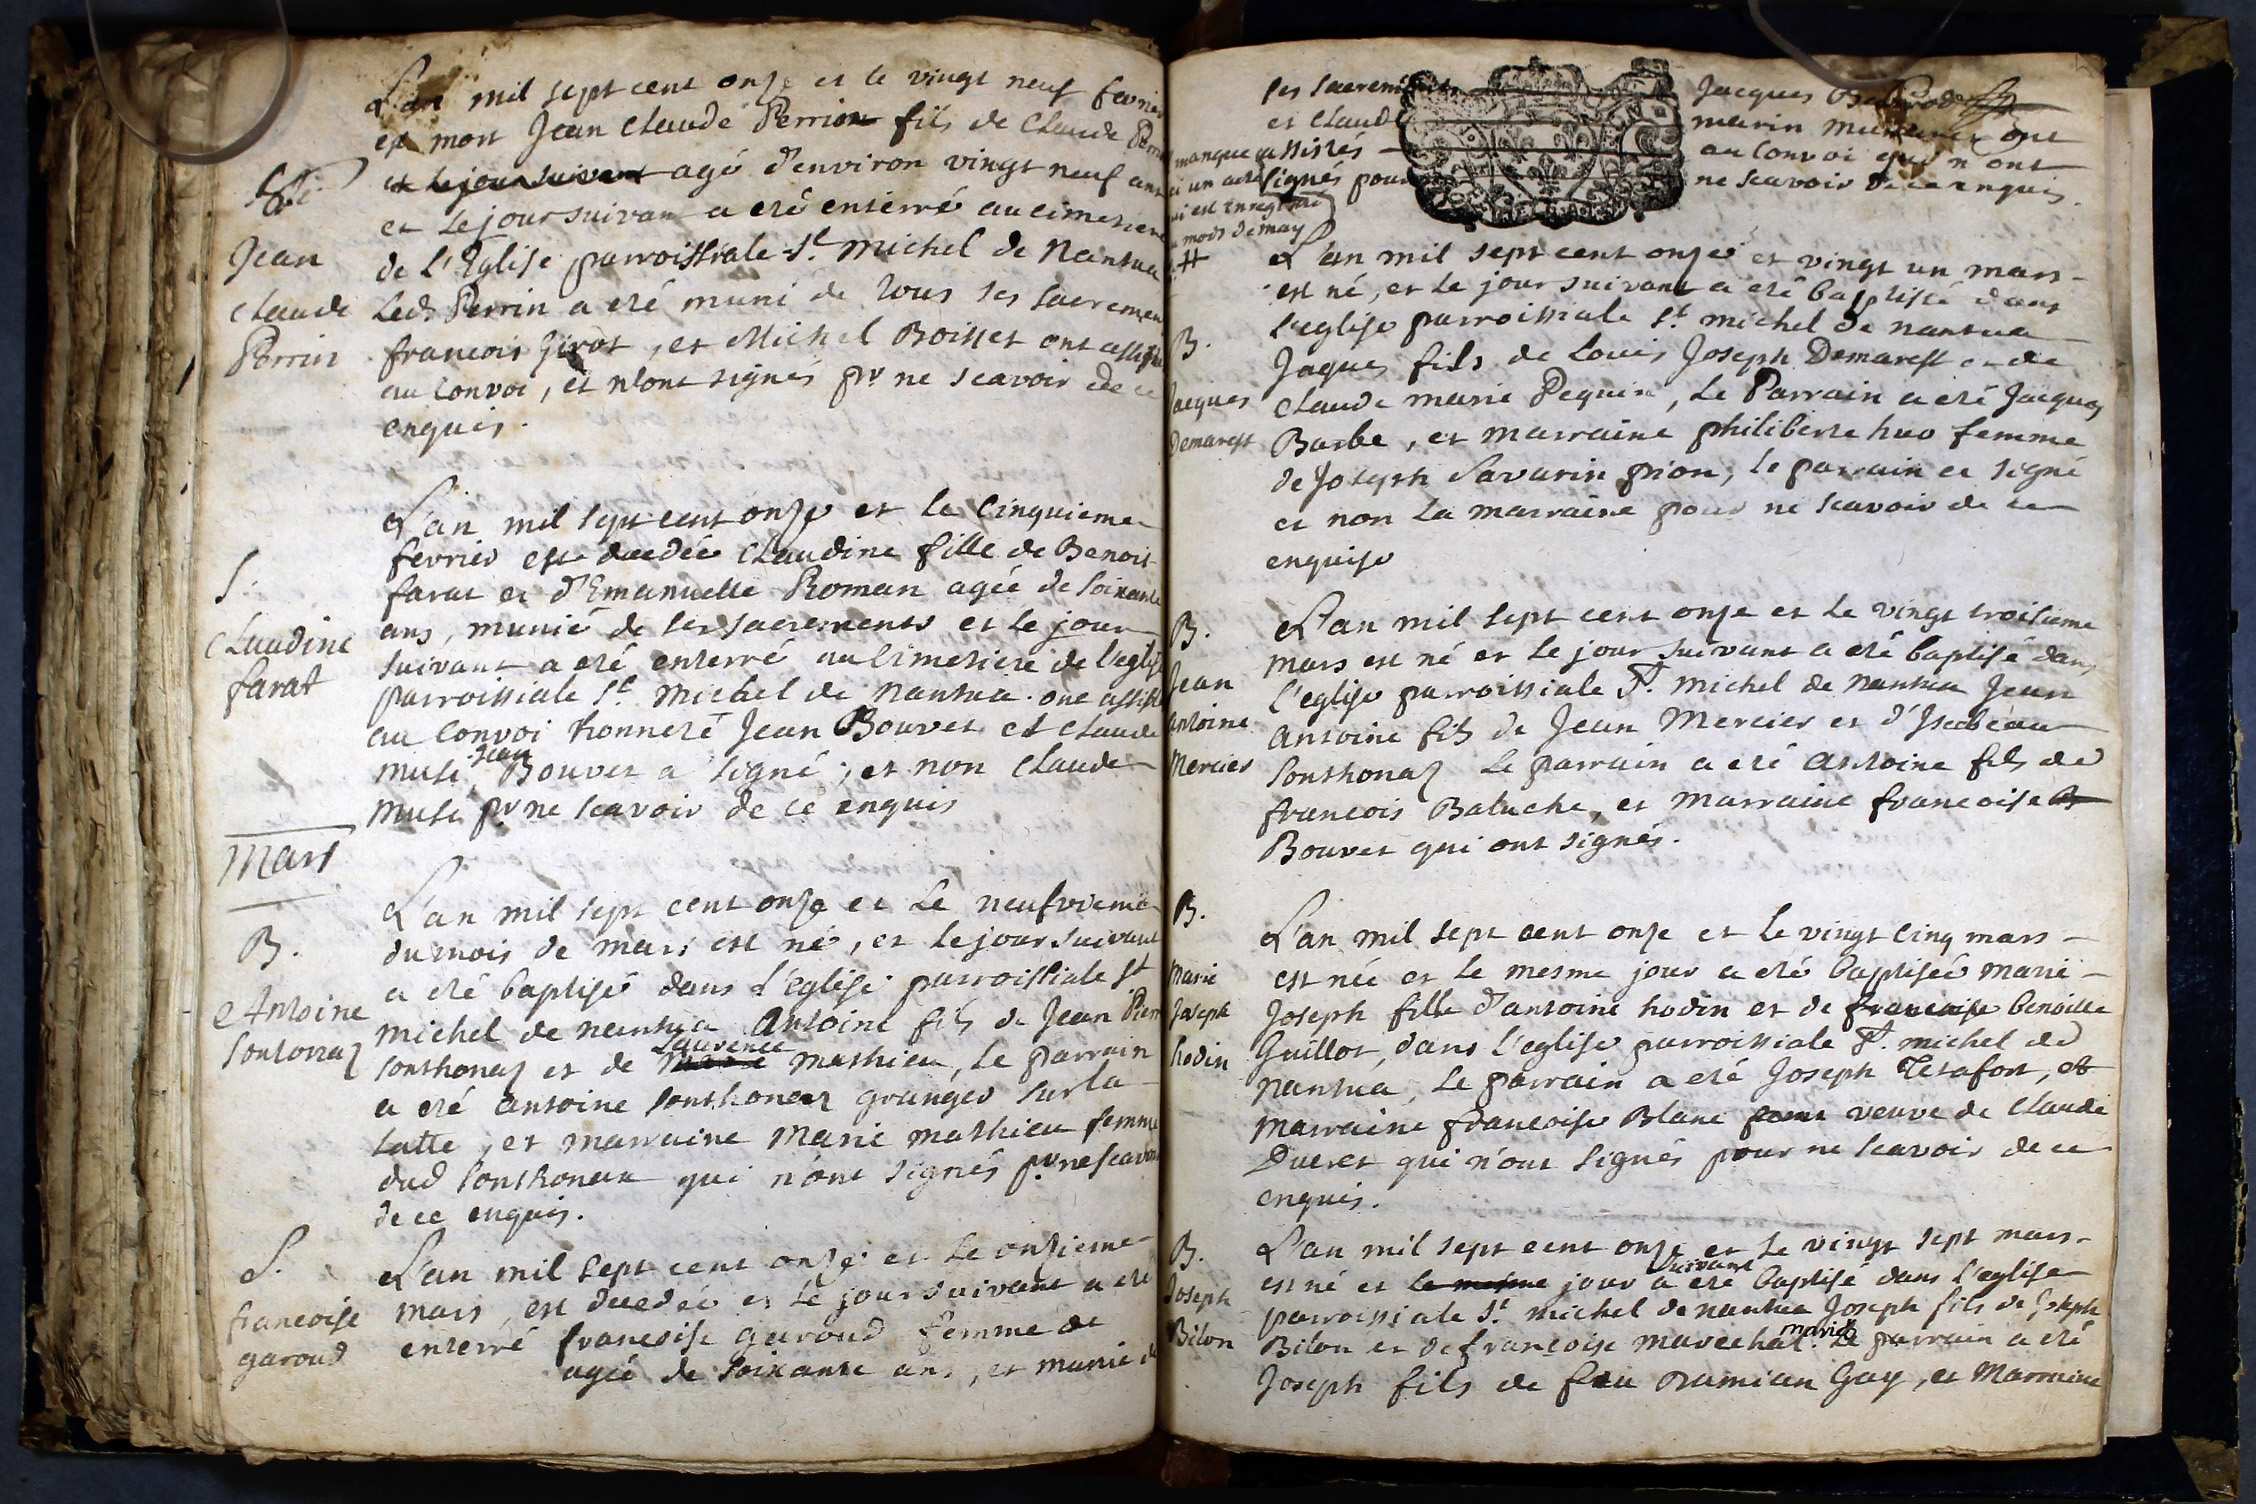 L'an mil sept cent onze et le vingt neuf fevrier
est mort Jean Claude Perrin fils de Claude
et le jour suivant agé d'environ vingt neuf ans
et le jour suivant a eté enterré au cimetiere
de l'Eglise parroissiale St. Michel de Nantua
Led. Perrin a eté muni de tous ses sacremen
francois Girot, et Michel Boisset ont assisté
au convoi, et n'ont signés pr. ne scavoir de ce
enquis.
Jean
Claude
Perrin
L'an mil sept cent onze et le cinquieme
fevrier est decedée Claudine fille de Benoit
farat et d'Emanuelle Roman agée de soixante
ans, munie de ses sacrements et le jour
suivant a eté enterré au cimetiere de l'eglise
parroissiale St. Michel de nantua. ont assisté
au convoi honneré Jean Bouvet et Claude
Musi, Jean Bouvet a signé, et non Claude
Musi pr. ne scavoir de ce enquis
S.
Claudine
farat
Mars
L'an mil sept cent onze et le neufvieme
du mois de mars est né, et le jour suivant
a eté baptisé dans l'église parroissiale St
Michel de nantua Antoine fils de Jean Pierre
sonthonaz et de Laurence Mathieu, Le parrain
a eté antoine sonthonax granger sur la
latte, et marraine Marie mathieu femme
dud sonthonax qui n'ont signés pr. ne scavoir
de ce enquis.
B.
Antoine
Sontonaz
L'an mil sept cent onze et le onzieme
mars, est decedée et le jour suivant a eté
enterré francoise garoud femme de
agée de soixante ans, et munie de
S.
francoise
garoud
ses sacrements
et Claude
assistés
signés pour
Jacques
marin ont
au convoi qui n'ont
ne scavoir de ce enquis.
manque
ici un acte
qui est enregistré
au mois de may
#
L'an mil sept cent onze et vingt un mars
est né, et le jour suivant a eté baptisté dans
l'eglise parroissiale St. michel de nantua
Jaques fils de Louis Joseph Demarest et de
Claude marie Pequin, Le Parrain a eté Jacques
Barbe, et marraine philiberte huo femme
de Joseph Savarin pion, le parrain a signé
et non la marraine pour ne scavoir de ce
enquise
B.
Jacques
Demarest
L'an mil sept cent onze et le vingt troisieme
Mars est né et le jour suivant a eté baptisé dans
l'eglise parroissiale St. Michel de nantua Jean
Antoine fils de Jean Mercier et d'Isabeau
Sonthonaz Le parrain a eté Antoine fils de
francois Baluche, et marraine francoise
Bouvet qui ont signés.
B.
Jean
Antoine
Mercier
L'an mil sept cent onze et le vingt cinq mars
est née et le mesme jour a eté baptisée marie
Joseph fille d'antoine hodin et de francoise benoitte
Guillot, dans l'eglise parroissiale St. michel de
nantua, Le parrain a eté Joseph Tetafort, et
marraine francoise Blanc veuve de Claude
Ducret qui n'ont signés pour ne scavoir de ce
enquis.
B.
Marie
Joseph
hodin
L'an mil sept cent onze et le vingt sept mars
est né et le mesme jour suivant a eté baptisé dans l'eglise
parroissiale St. michel de nantua Joseph fils de Joseph
Bilon et de francoise marechal mariés. Le parrain a eté
Joseph fils de feu Damian Gay, et Marraine
B.
Joseph
Bilon